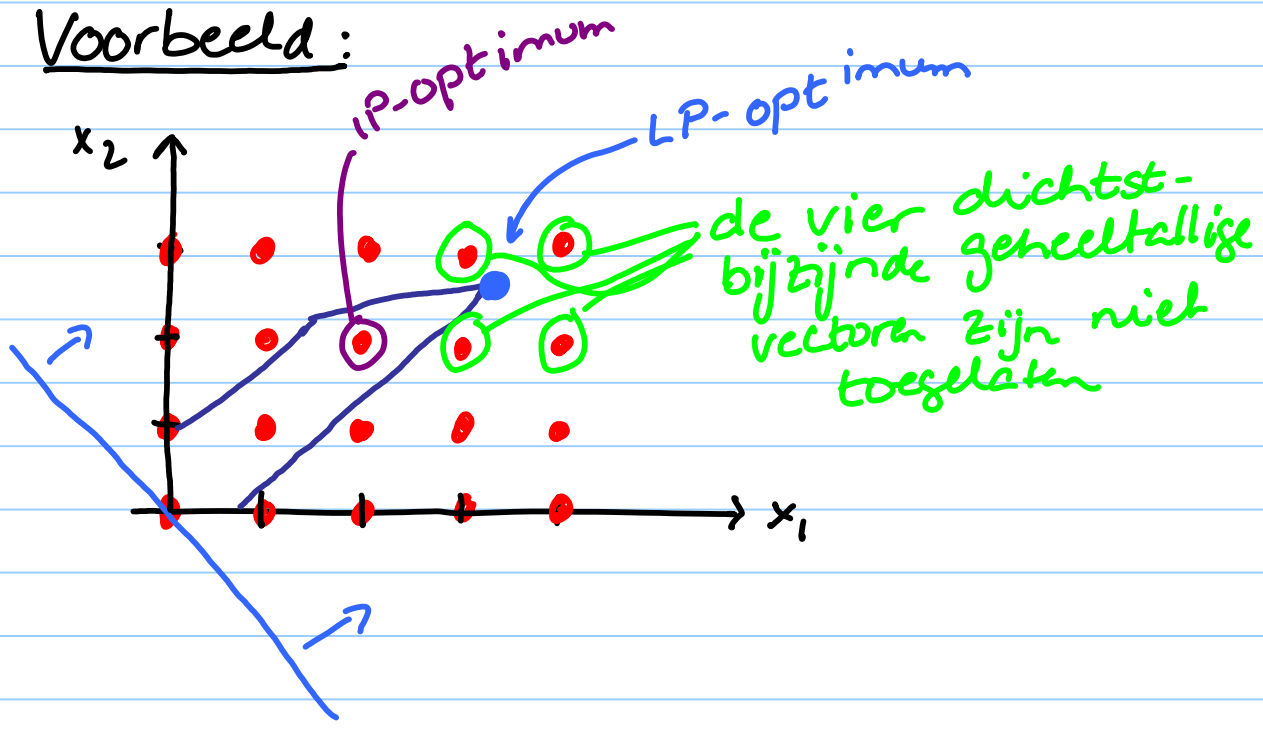 Voorbeeld:
IP-optimum
LP-optimum
x2
de vier dichtst-
bijzijnde geheeltallige
vectoren zijn niet
toegelaten
x1